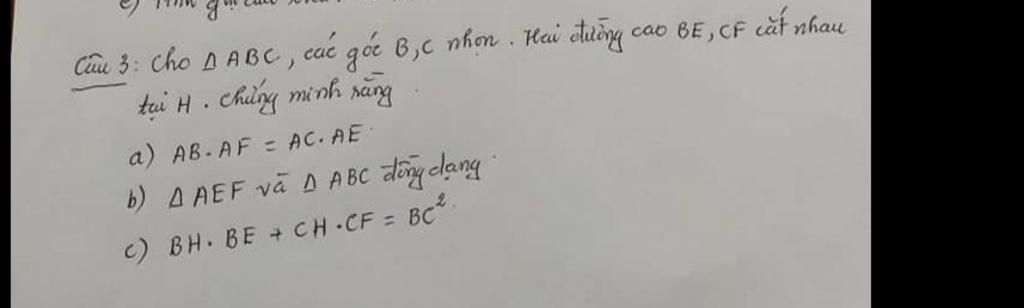 Câu 3: Cho Δ ABC, các góc B, C nhọn. Hai đường cao BE, CF cắt nhau
tại H. chứng minh rằng
a) AB. AF = AC. AE
b) Δ AEF và Δ ABC đồng dạng
c) BH. BE + CH. CF = BC²